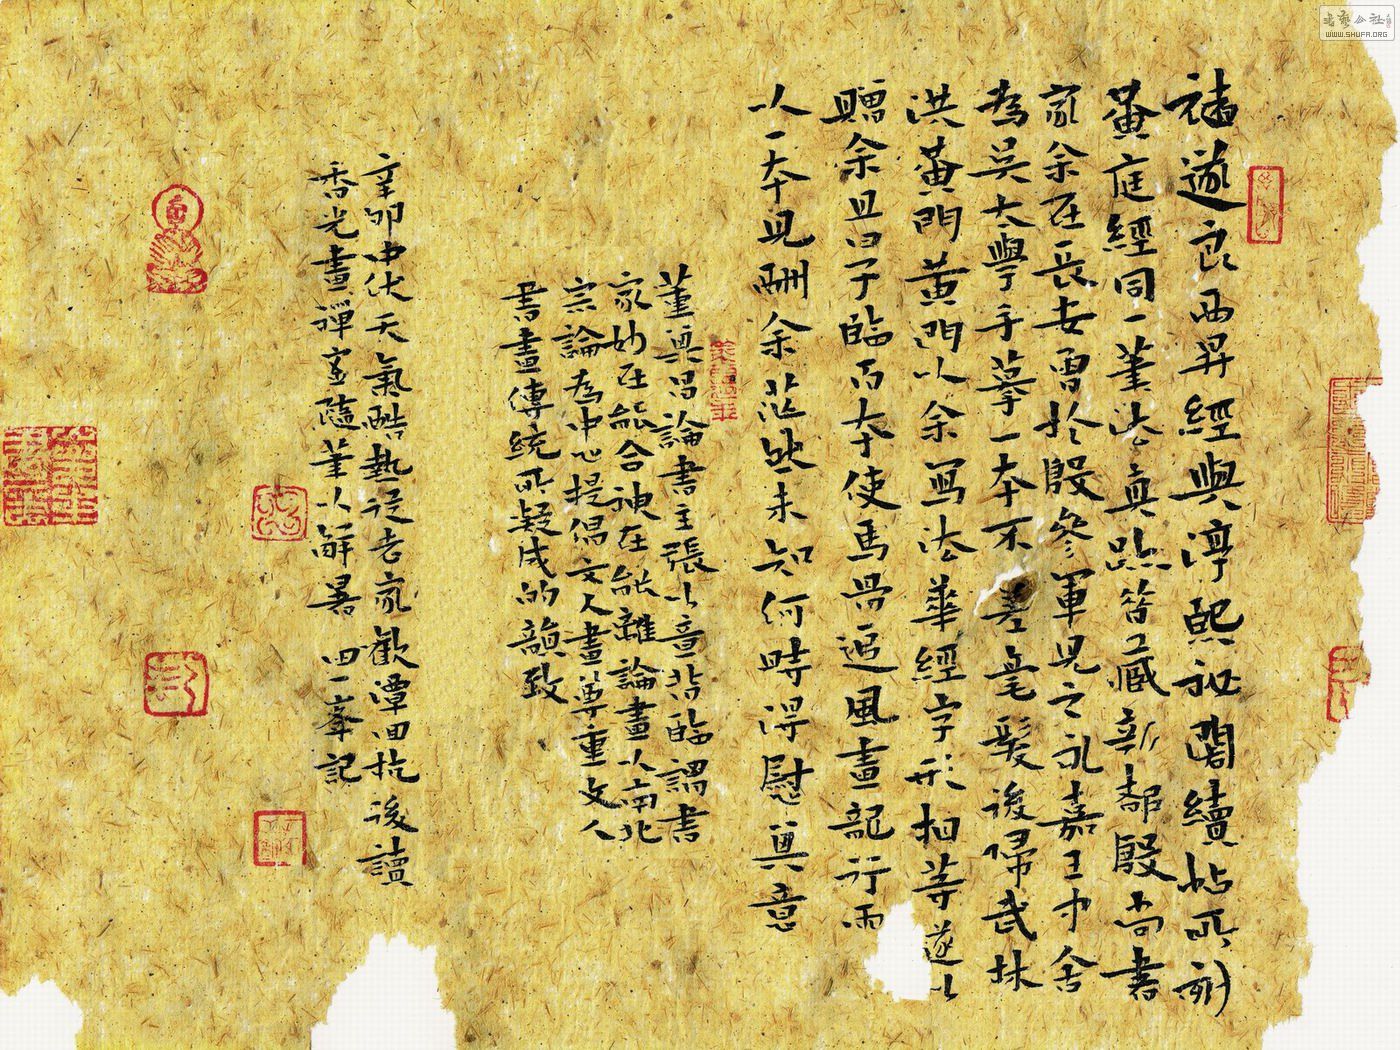 褚遂良西昇經與淳熙祕閣續帖所刻
黃庭經同一筆法真跡藏新鄱殷尚書
家余在長安曾於殷參軍見之永嘉王中舍
為吳太學手摹一本不差毫髮後歸武林
洪黃門黃門以余寫法華經字形相等遂以
贈余且曰子臨百本使馬骨追風畫龍行雨
以一本見酬余茫然未知何時得慰其意
董其昌論書主張以意背臨謂書
家妙在能合神在能離論畫以南北
宗論為中心提倡文人畫尊重文人
書畫傳統所凝成的韻致
辛卯中伏天氣酷熱從老家歡潭回杭後讀
香光畫禪室隨筆以解暑 四一峯記
WWW.SHUFA.ORG